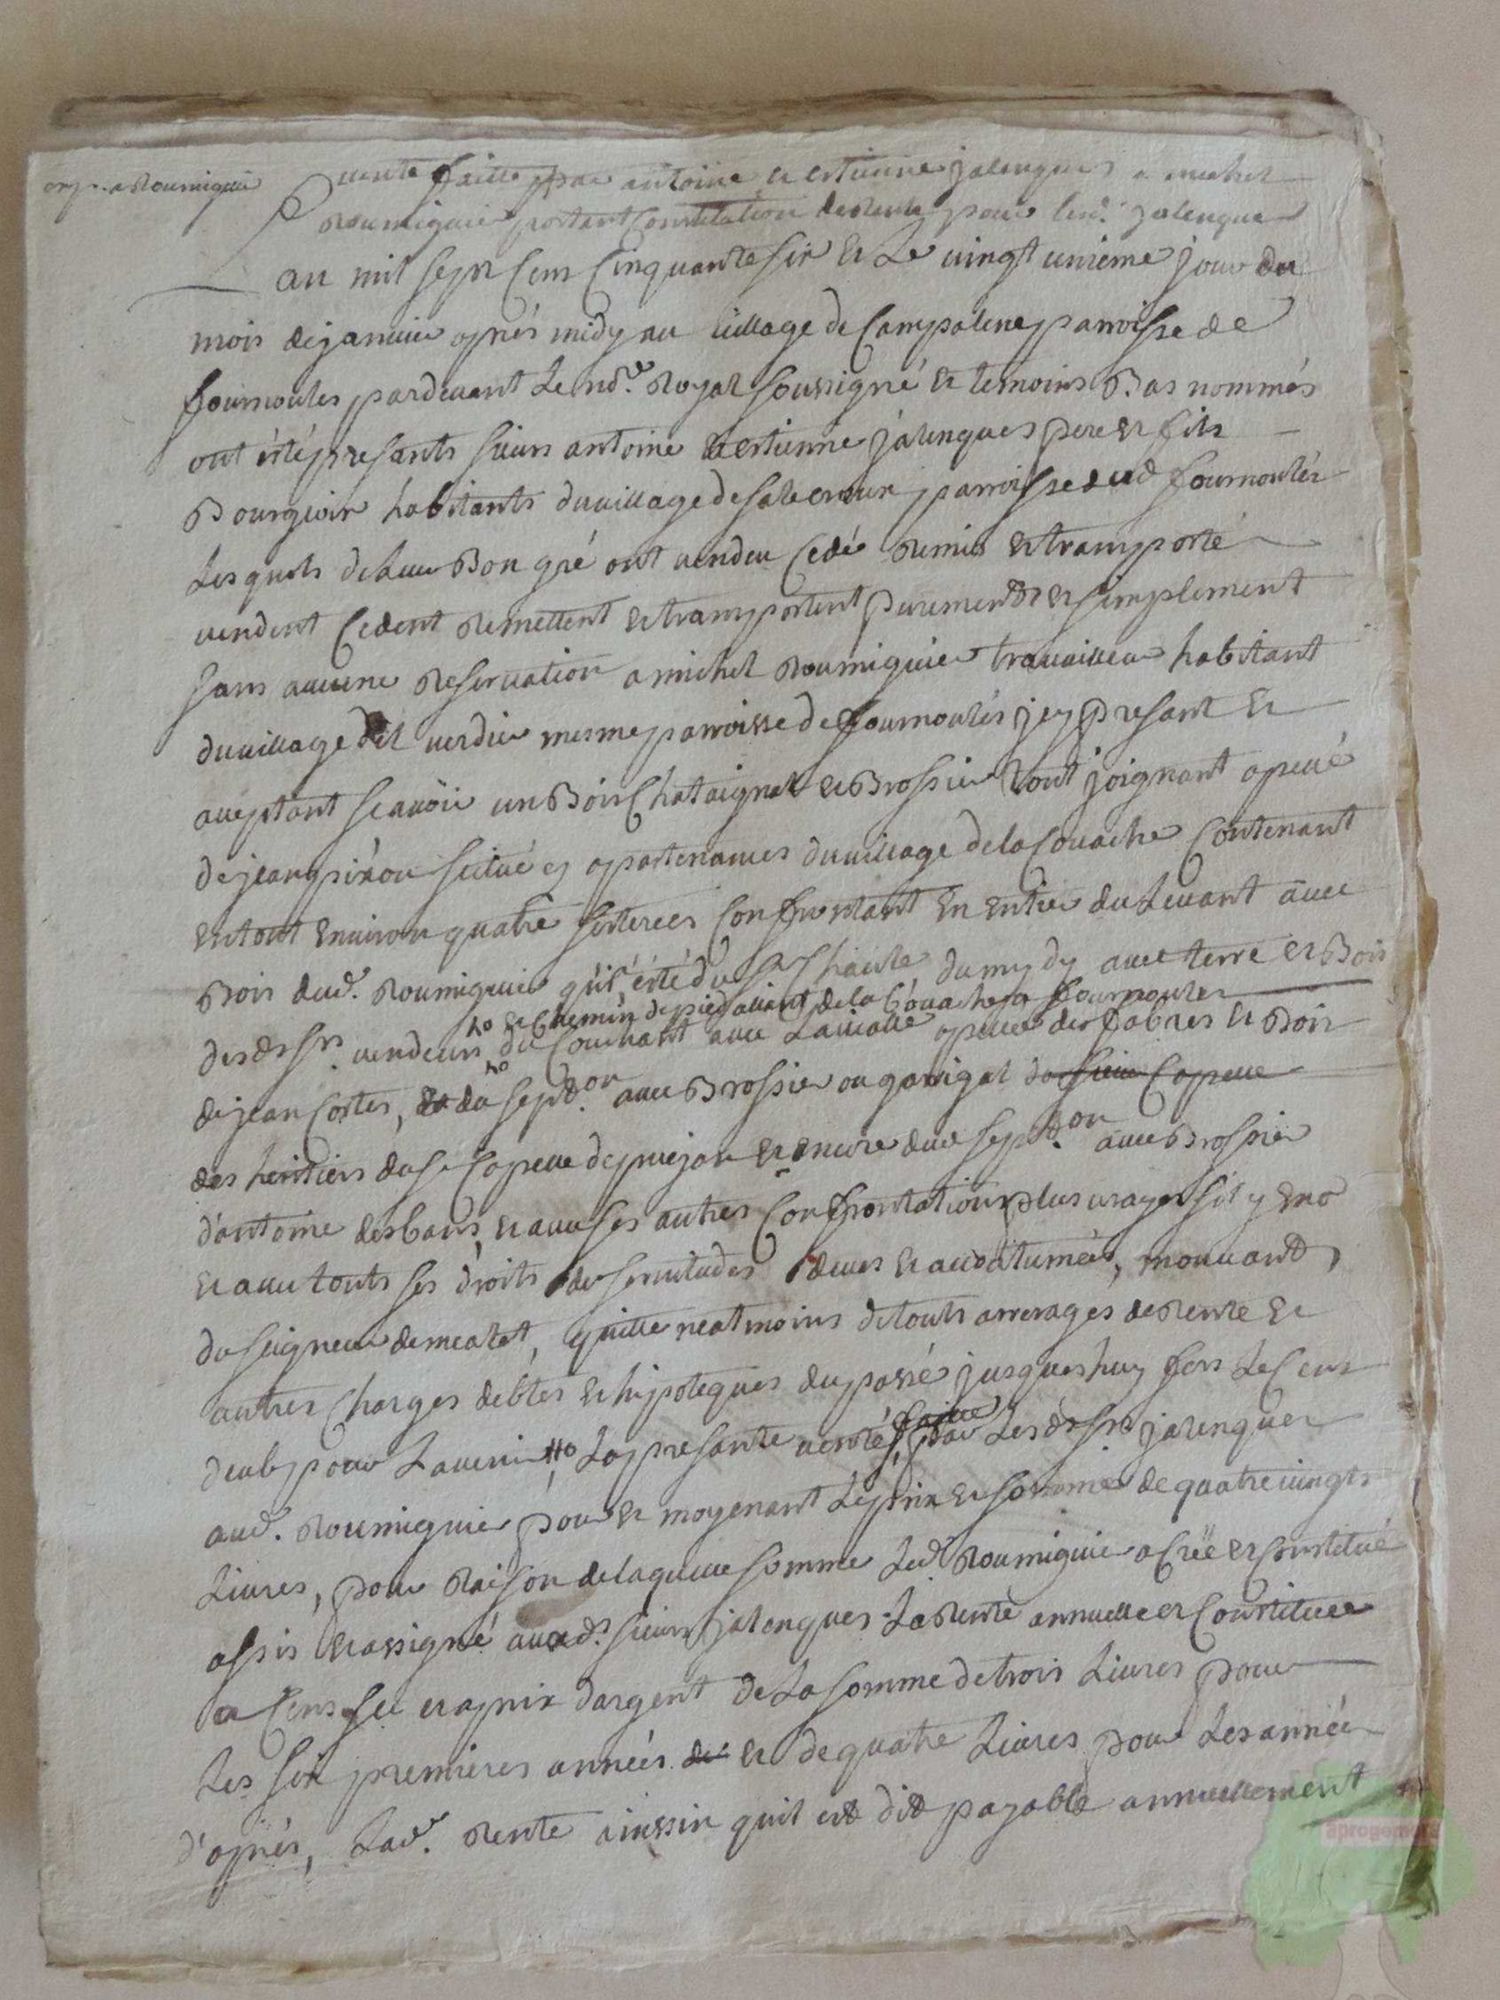 a Roumiguie
vente faitte par antoine et estienne jalenques a michel
Roumiguie portant Constitution de rente pour lesd. jalenques
an mil sept Cens Cinquante six et Le vingt unieme jour du
mois de janvie apres midy au village de Campalene parroisse de
fournoules pardevant Le no.re Royal soussigné et temoins Bas nommés
ont été presants sieurs antoine et estienne jalenques pere et fils
Bourgeoix habitants du village de parroisse dud fournoulés
Lesquels de Leur Bon gré ont vendeu Cedé Remis et transporté
vendent Cedent Remettent et transportent purement et simplement
sans aucune Reservation a michel Roumiguie travailleur habitant
du village del verdie mesme parroisse de fournoulés jcy presant et
aceptant scavoir un Bois Chataignal et Brossier tout joignant apellé
de jean situé es apartenances du village de la Couache Contenant
en tout environ quatre seterees Confrontant En Entier du Levant avec
Bois dud. Roumiguie du sr du my dy avec terre et Bois
desd srs. vendeurs et Chemin de pied allant de la Couache a fournoules
du Couchant avec apellé des fabres et Bois
de jean Cortes, et du sept.on avec Brossier ou garrigal du sieur Capelle
des heritiers du sr Capelle de puejan et encore dud sept.on avec Brossier
d'antoine desbans, et avec ses autres Confrontations plus vrayes sil y en a
et avec touts ses droits et servitudes deues et accoutumées, mouvant
du seigneur de mealet, quitte neatmoins de touts arrerages de Rente et
autres Charges debtes et hipoteques du passé jusques huy fors Le Cens
deub pour L'avenir, La presante vente faitte par Lesd srs jalenques
aud. Roumiguie pour et moyenant Le prix et somme de quatre vingts
Livres, pour Raison de laquelle somme Led. Roumiguie a Créé et Constitué
assis et assigné auxd. sieurs jalenques La Rente annuelle et Constituée
a Cens et a prix dargent de La somme de trois Livres pour
Les six premieres années de et de quatre Livres pour Les année
d'apres, Lad. Rente ainssin quil est dit payable annuellement
aprogemere